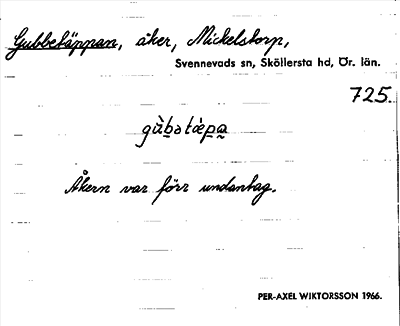 Gubbetäppan, åker, Mickelstorp,
Svennevads sn, Sköllersta hd, Ör. län.
725.
gùb̠ətæ̀p̠a̠
Åkern var förr undantag.
PER-AXEL WIKTORSSON 1966.